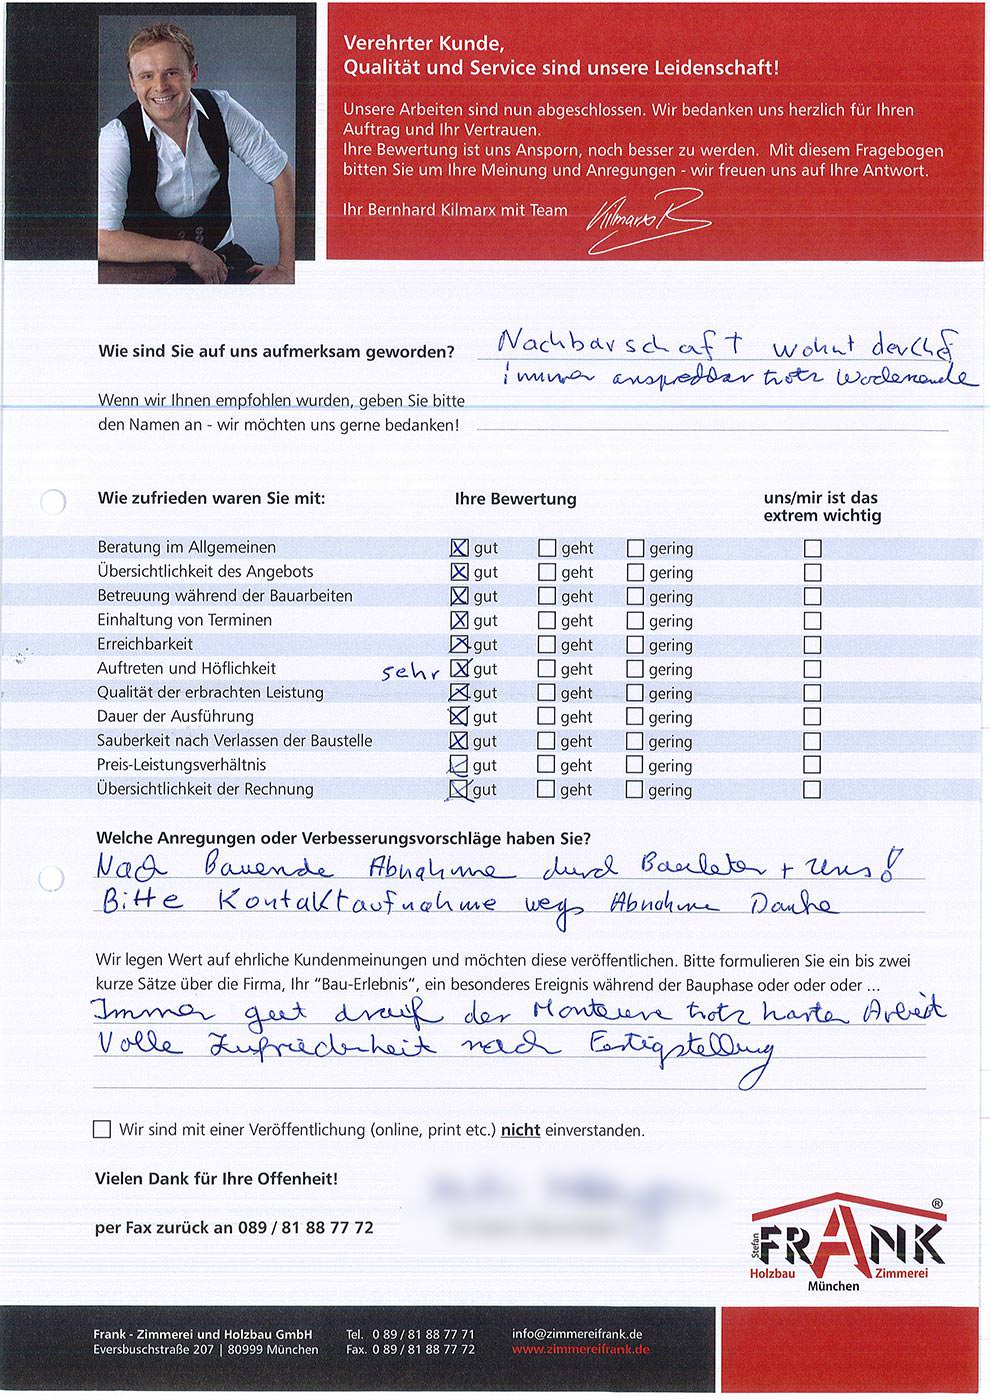 Verehrter Kunde,
Qualität und Service sind unsere Leidenschaft!
Unsere Arbeiten sind nun abgeschlossen. Wir bedanken uns herzlich für Ihren
Auftrag und Ihr Vertrauen.
Ihre Bewertung ist uns Ansporn, noch besser zu werden. Mit diesem Fragebogen
bitten Sie um Ihre Meinung und Anregungen - wir freuen uns auf Ihre Antwort.
Ihr Bernhard Kilmarx mit Team Kilmarx B
Wie sind Sie auf uns aufmerksam geworden? Nachbarschaft wohnt der Chef
immer ansprechbar trotz Wochenende
Wenn wir Ihnen empfohlen wurden, geben Sie bitte
den Namen an - wir möchten uns gerne bedanken!
Wie zufrieden waren Sie mit: Ihre Bewertung uns/mir ist das
extrem wichtig
Beratung im Allgemeinen gut geht gering
Übersichtlichkeit des Angebots gut geht gering
Betreuung während der Bauarbeiten gut geht gering
Einhaltung von Terminen gut geht gering
Erreichbarkeit gut geht gering
Auftreten und Höflichkeit sehr gut geht gering
Qualität der erbrachten Leistung gut geht gering
Dauer der Ausführung gut geht gering
Sauberkeit nach Verlassen der Baustelle gut geht gering
Preis-Leistungsverhältnis gut geht gering
Übersichtlichkeit der Rechnung gut geht gering
Welche Anregungen oder Verbesserungsvorschläge haben Sie?
Nach Bauende Abnahme durch Bauleiter + Uns!
Bitte Kontaktaufnahme wegs Abnahme Danke
Wir legen Wert auf ehrliche Kundenmeinungen und möchten diese veröffentlichen. Bitte formulieren Sie ein bis zwei
kurze Sätze über die Firma, Ihr "Bau-Erlebnis", ein besonderes Ereignis während der Bauphase oder oder oder ...
Immer gut drauf der Monteure trotz harter Arbeit
Volle Zufriedenheit nach Fertigstellung
Wir sind mit einer Veröffentlichung (online, print etc.) nicht einverstanden.
Vielen Dank für Ihre Offenheit!
per Fax zurück an 089 / 81 88 77 72
Stefan FRANK ®
Holzbau Zimmerei
München
Frank - Zimmerei und Holzbau GmbH Tel. 0 89 / 81 88 77 71 info@zimmereifrank.de
Eversbuschstraße 207 | 80999 München Fax. 0 89 / 81 88 77 72 www.zimmereifrank.de